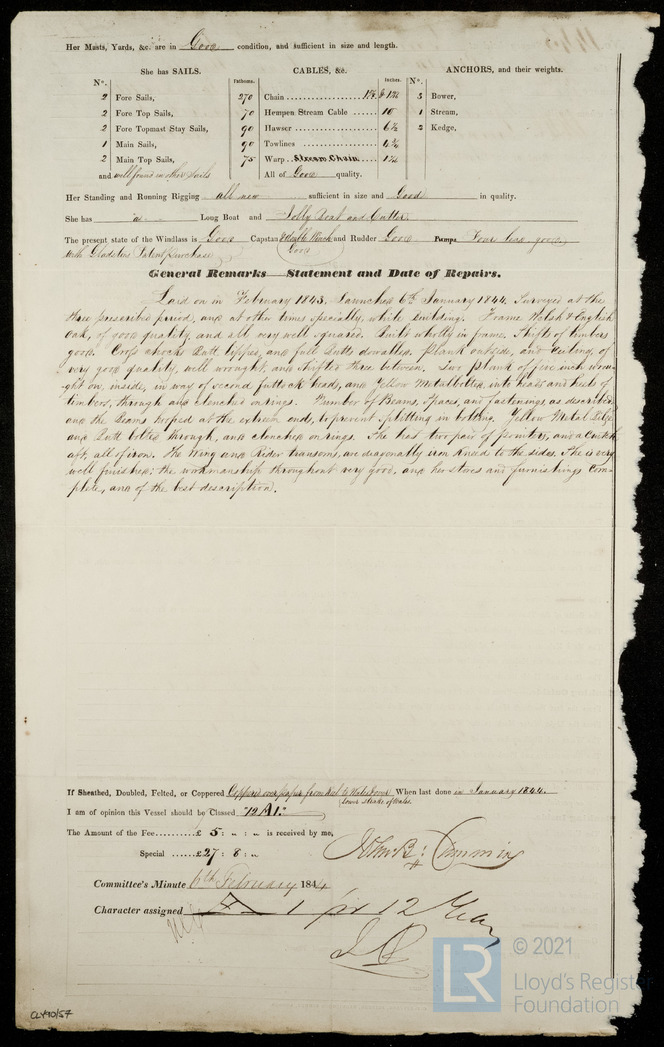 Her Masts, Yards, &c. are in Good condition, and sufficient in size and length.
She has SAILS.
No.
2 Fore Sails,
2 Fore Top Sails,
2 Fore Topmast Stay Sails,
1 Main Sails,
2 Main Top Sails,
and well found in other Sails
CABLES, &c.
Fathoms. Inches.
270 Chain 1⅝ & 1¾
70 Hempen Stream Cable 10
90 Hawser 6½
90 Towlines
75 Warp Stream Chain
All of Good quality.
ANCHORS, and their weights.
No.
3 Bower,
1 Stream,
2 Kedge,
Her Standing and Running Rigging all new sufficient in size and Good in quality.
She has a Long Boat and Jolly Boat and Cutter.
The present state of the Windlass is Good Capstan & Winch and Rudder Good Pumps Four good
Good
with Gladstones Patent purchase
General Remarks—Statement and Date of Repairs.
Laid on in February 1843, Launched 6th January 1844. Surveyed at the
three prescribed period, and at other times specially, while building. Frame Welsh & English
Oak, of good quality, and all very well squared. Built wholly in frame. Shifts of timbers
good. Cross chocks Butt lipped, and full Butts dowalled. Plank outside, and ceiling, of
very good quality, well wrought, and shifted three between. Two plank of five inch wrou-
ght on, inside, in way of second futtock heads, and Yellow Metal bolted, into heads and heels of
timbers, through and clenched on rings. Number of Beams, Spaces, and fastenings as described
and the Beams hooped at the extreem ends, to prevent splitting in bolting. Yellow Metal Bilge
and Butt bolted through, and clenched on rings. She has two pair of pointers, and a Crutch
aft, all of iron. The Wing and Rider transoms, are diagonally iron kneed to the sides. She is very
well finished; the workmanship throughout very good, and her stores and furnishings com-
plete, and of the best description.
If Sheathed, Doubled, Felted, or Coppered Coppered over paper from keel to When last done in January 1844.
lower strake of Wales.
I am of opinion this Vessel should be Classed "12 A1."
The Amount of the Fee £ 5 : " : " is received by me,
Special £27 : 8 : "
John B: Cumming
Committee's Minute 6th February 1844
Character assigned A 1 for 12 Years
© 2021
LR
Lloyd's Register
Foundation
CLY90/57